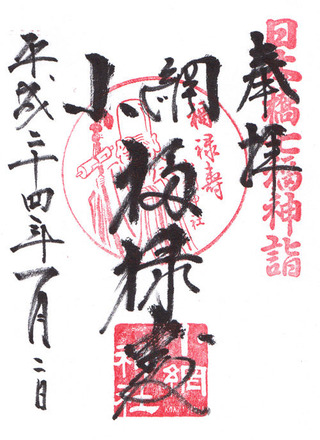 奉拝
日本橋七福神詣
小網
福禄寿
福禄寿
小網神社
平成二十四年一月二日